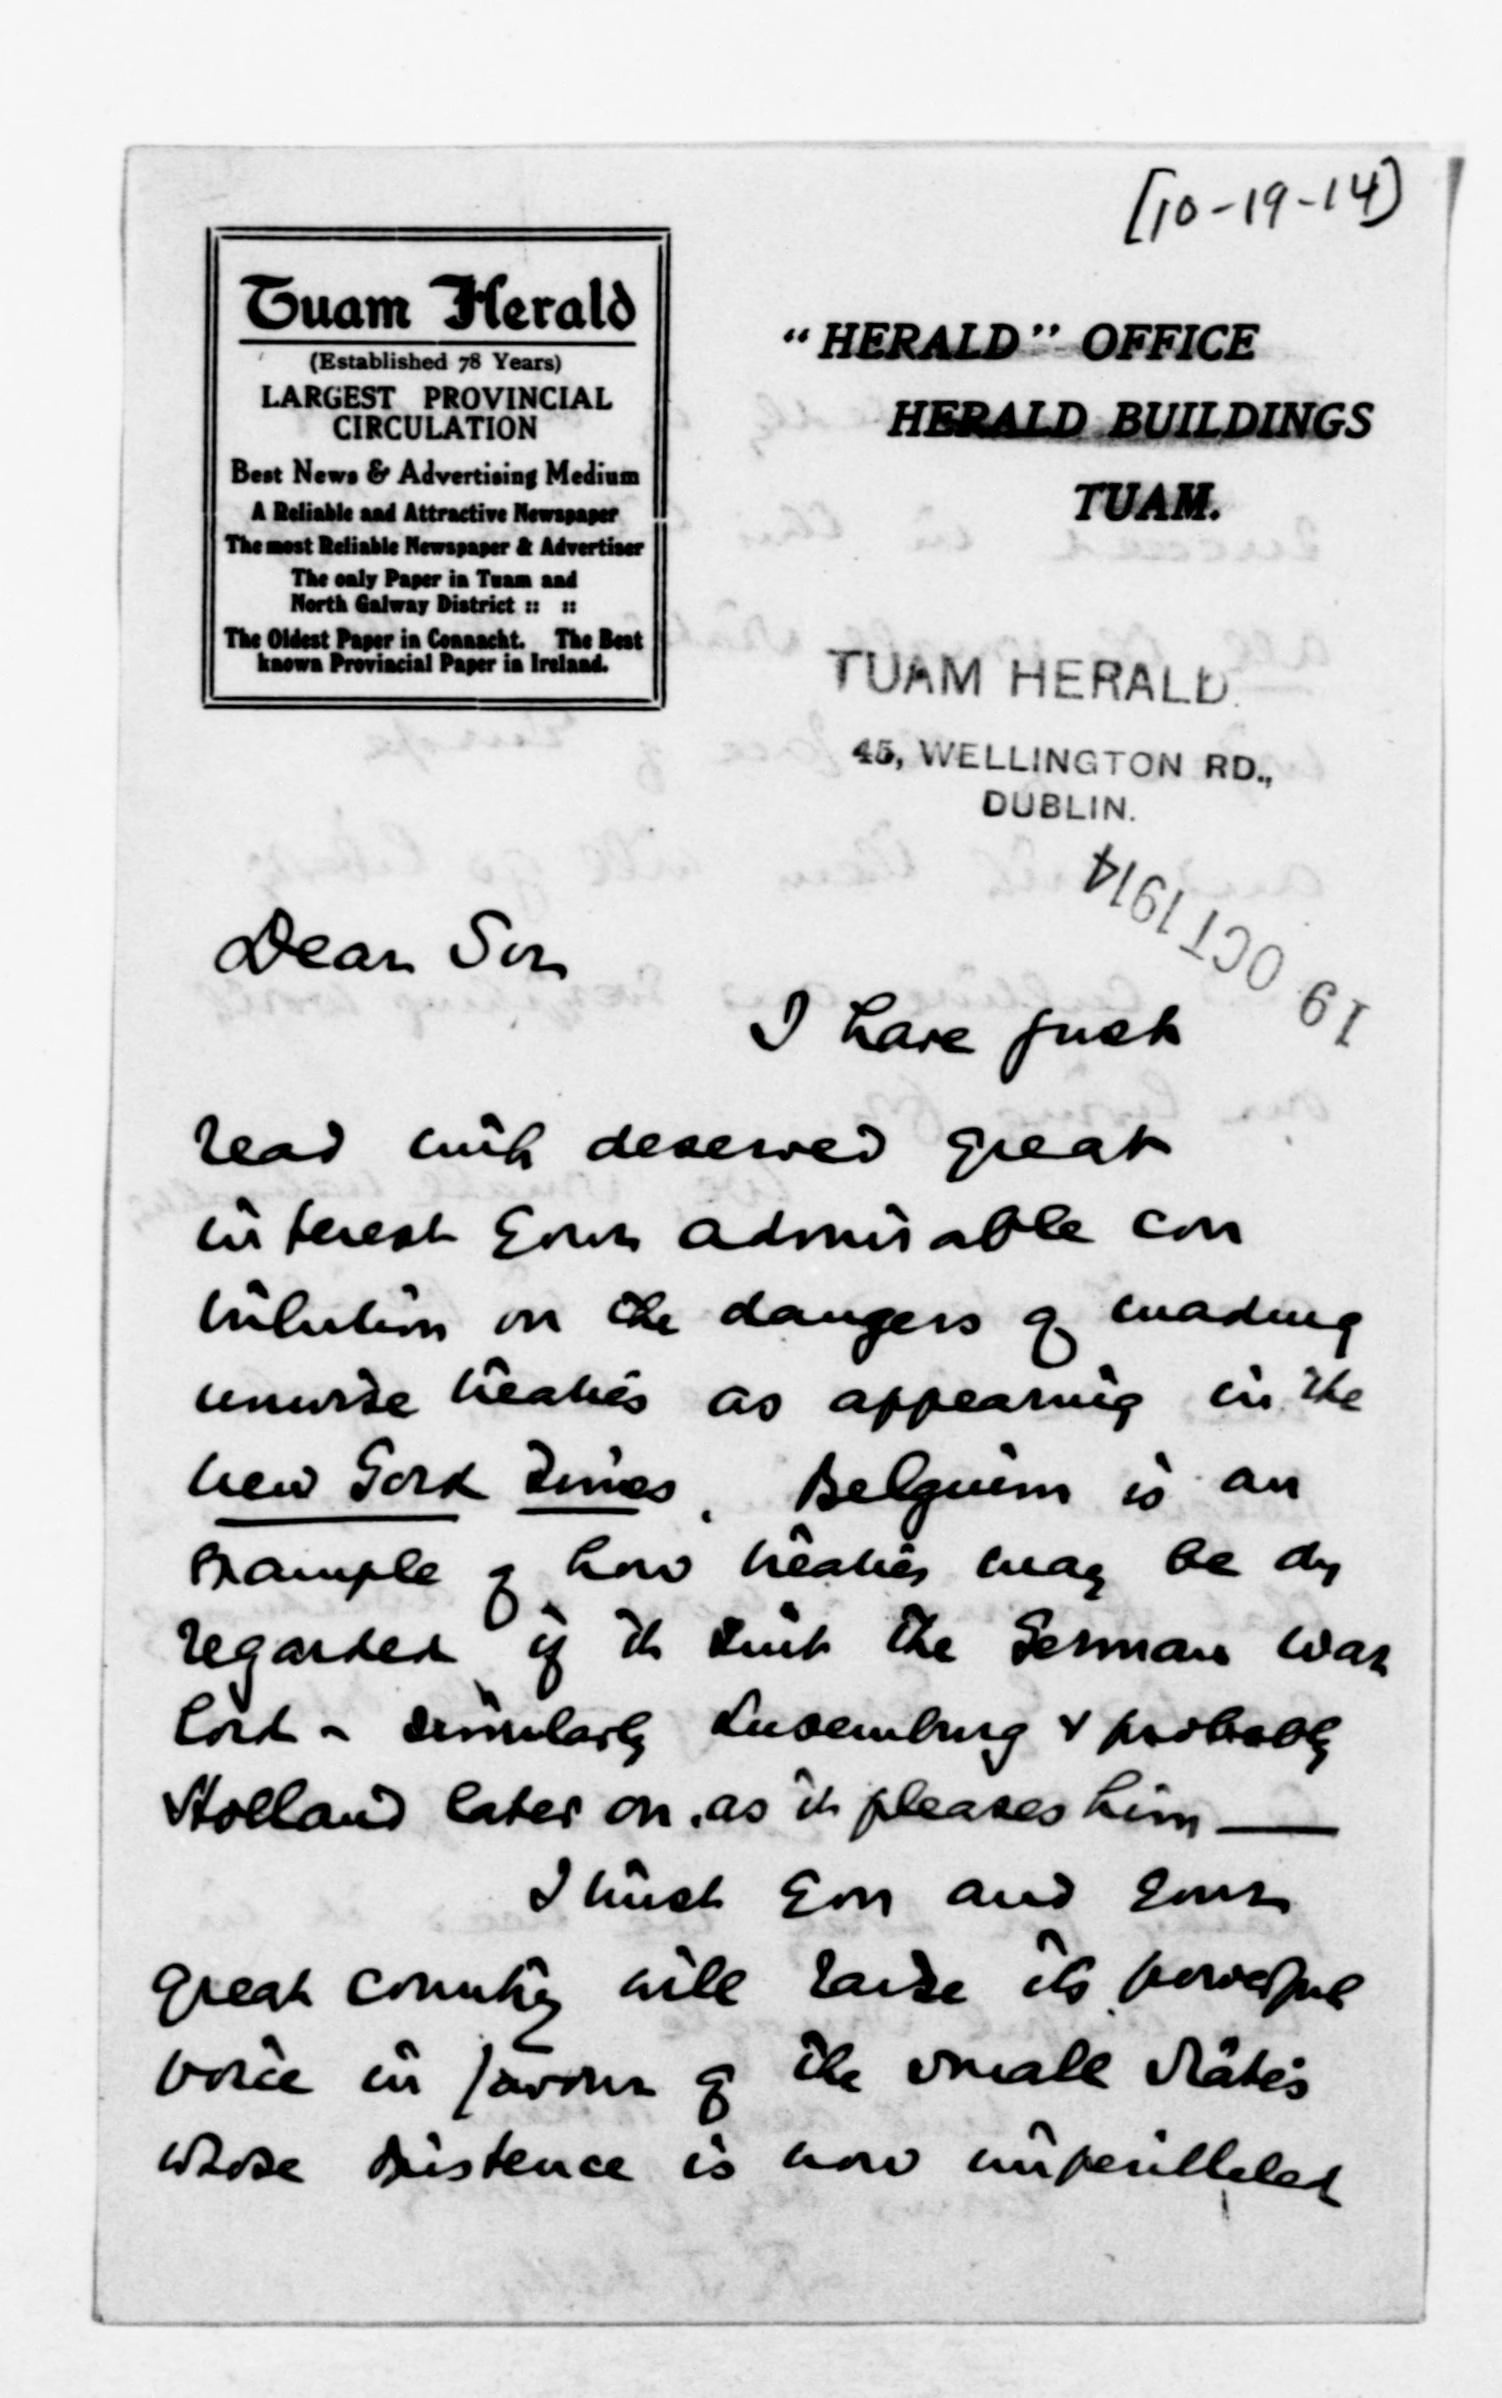 [10-19-14]
Tuam Herald
(Established 78 Years)
LARGEST PROVINCIAL
CIRCULATION
Best News & Advertising Medium
A Reliable and Attractive Newspaper
The most Reliable Newspaper & Advertiser
The only Paper in Tuam and
North Galway District :: ::
The Oldest Paper in Connacht. The Best
known Provincial Paper in Ireland.
"HERALD" OFFICE
HERALD BUILDINGS
TUAM.
TUAM HERALD.
45, WELLINGTON RD.,
DUBLIN.
19 OCT 1914
Dear Sir
I have just
read with deserved great
interest your admirable con
tribution on the dangers of making
unwise treaties as appearing in the
New York Times. Belguim is an
example of how treaties may be dis
regarded if it suit the German War
Lord - similarly Luxemburg & probably
Holland later on, as it pleases him —
I trust you and your
great country will raise its powerful
voice in favour of the small States
whose existence is now imperilleled